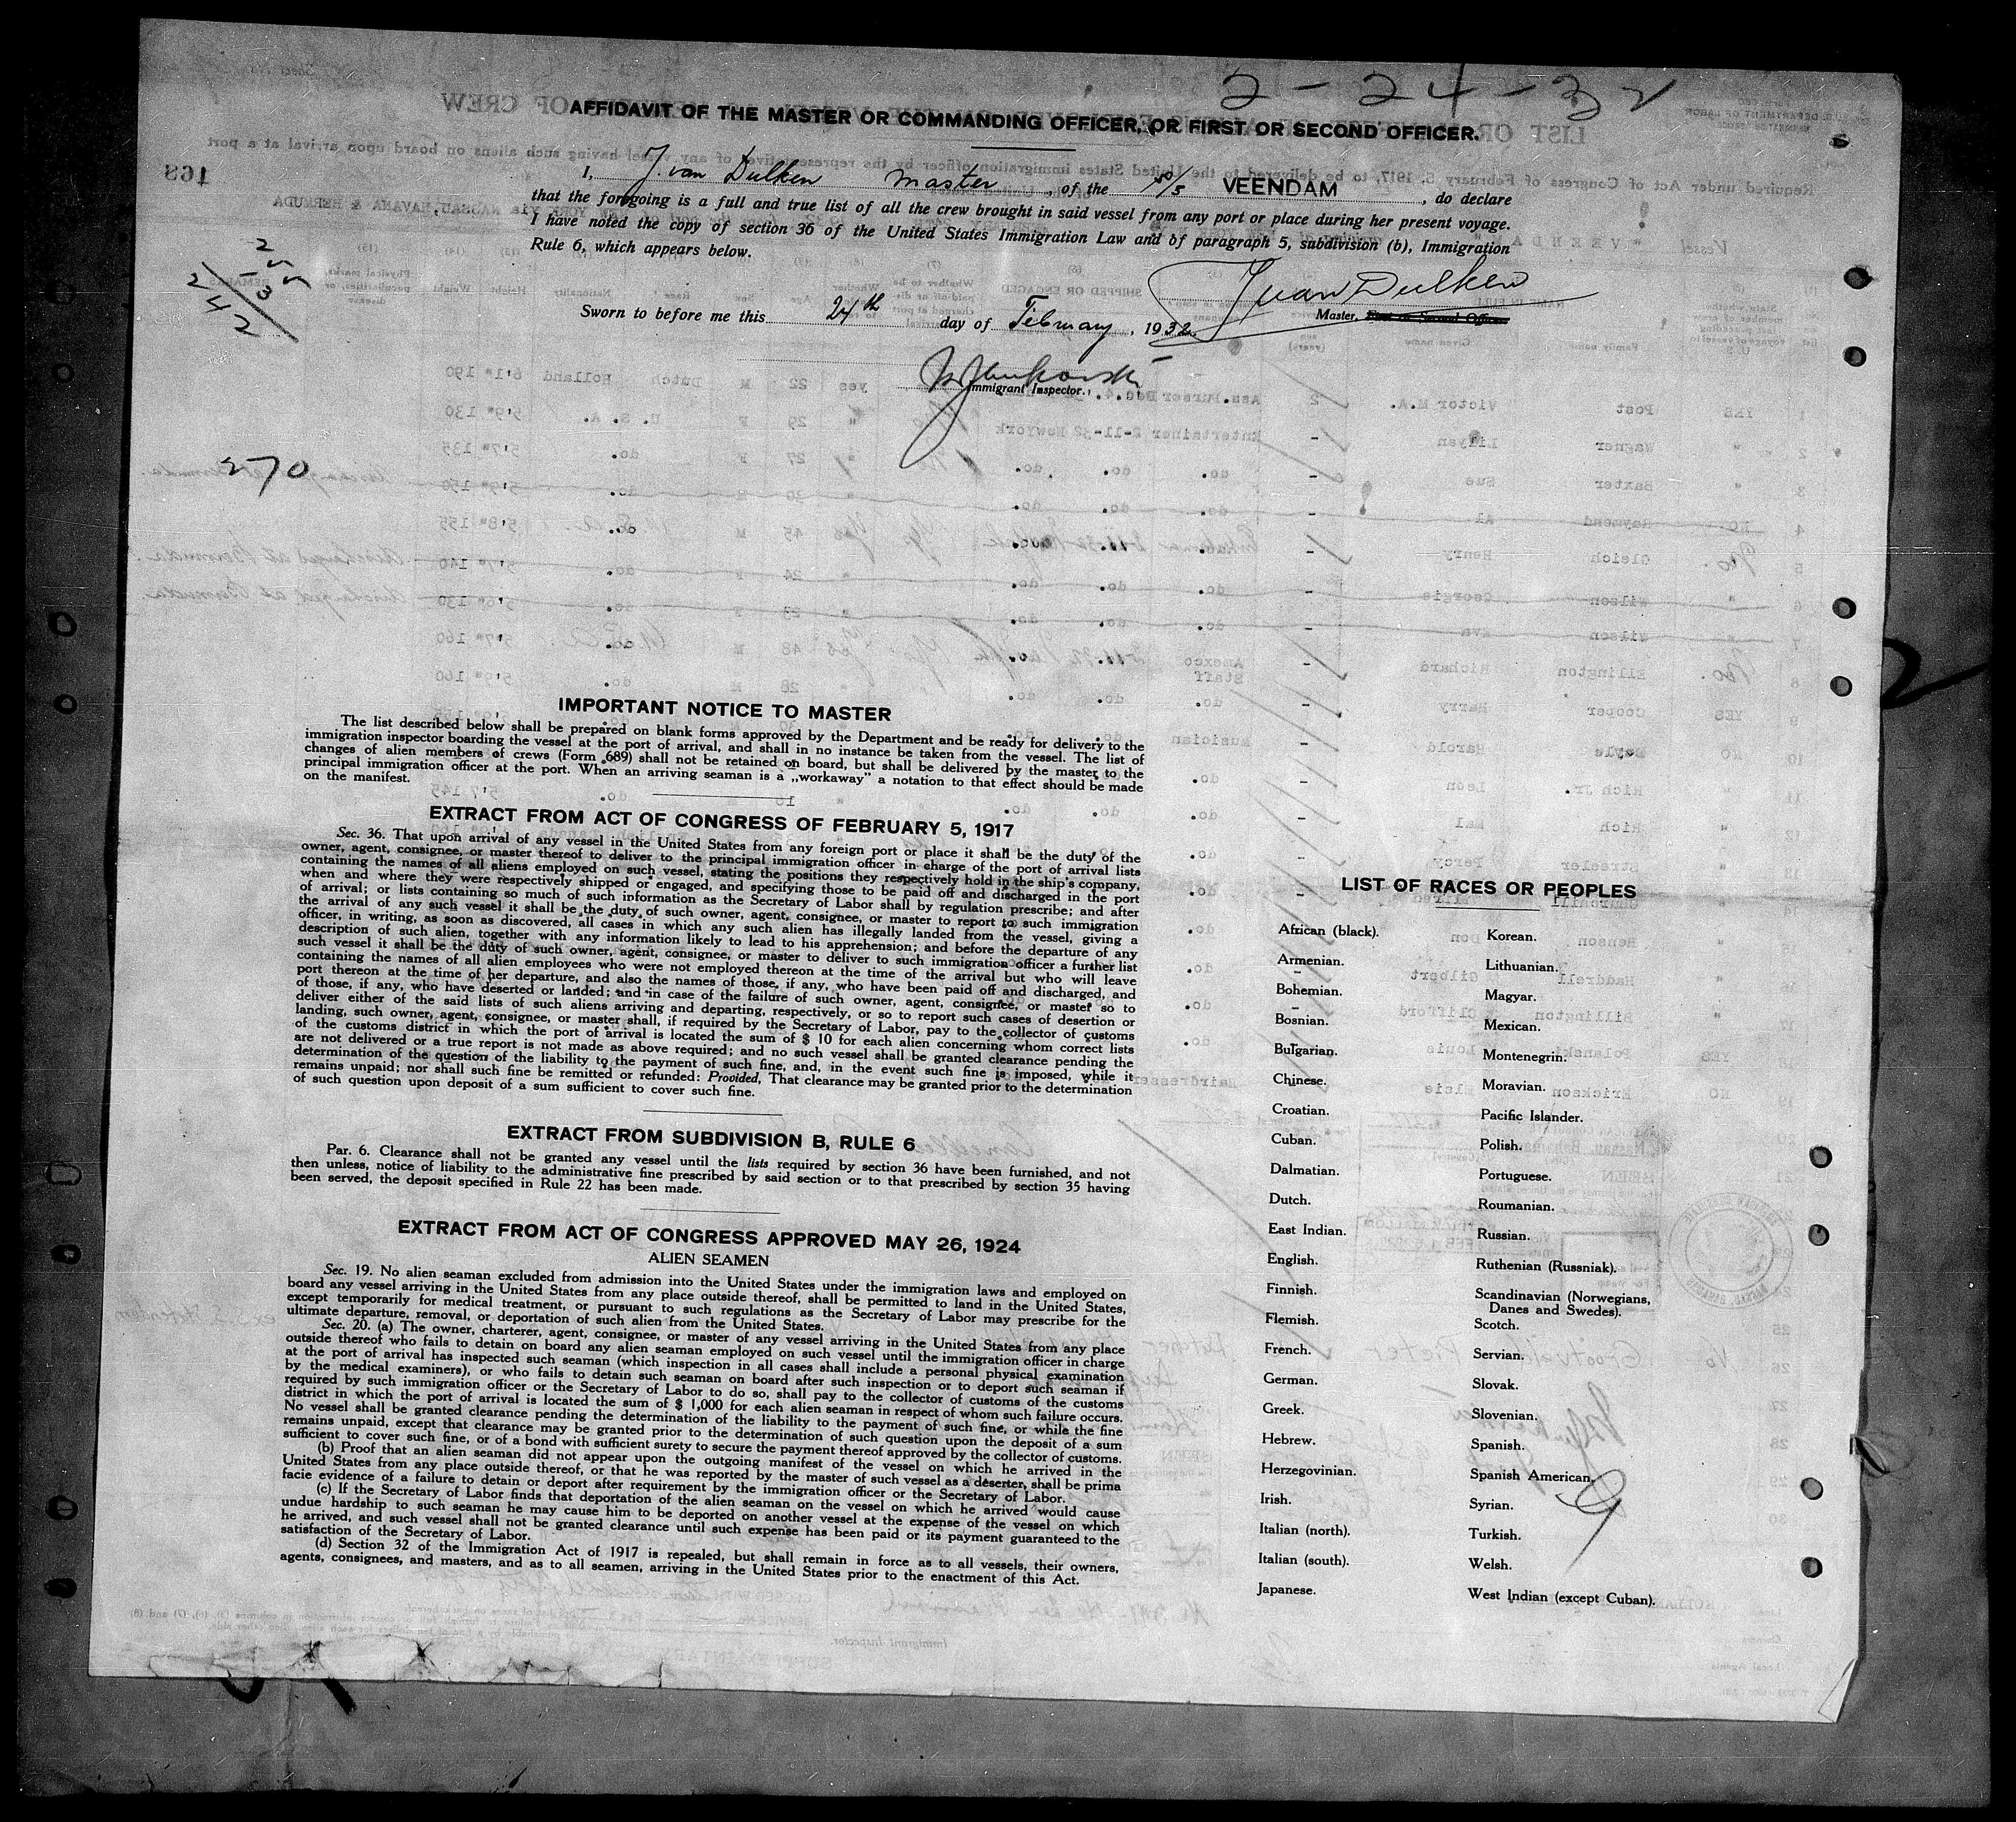 2-24-32
AFFIDAVIT OF THE MASTER OR COMMANDING OFFICER, OR FIRST OR SECOND OFFICER.
I, J. van Dulken Master, of the S/S VEENDAM, do declare
that the foregoing is a full and true list of all the crew brought in said vessel from any port or place during her present voyage.
I have noted the copy of section 36 of the United States Immigration Law and of paragraph 5, subdivision (b), Immigration
Rule 6, which appears below.
J van Dulken
Master, First or Second Officer.
Sworn to before me this 24th day of February, 1932.
Immigrant Inspector.
255
13
242
270
IMPORTANT NOTICE TO MASTER
The list described below shall be prepared on blank forms approved by the Department and be ready for delivery to the
immigration inspector boarding the vessel at the port of arrival, and shall in no instance be taken from the vessel. The list of
changes of alien members of crews (Form 689) shall not be retained on board, but shall be delivered by the master to the
principal immigration officer at the port. When an arriving seaman is a „workaway” a notation to that effect should be made
on the manifest.
EXTRACT FROM ACT OF CONGRESS OF FEBRUARY 5, 1917
Sec. 36. That upon arrival of any vessel in the United States from any foreign port or place it shall be the duty of the
owner, agent, consignee, or master thereof to deliver to the principal immigration officer in charge of the port of arrival lists
containing the names of all aliens employed on such vessel, stating the positions they respectively hold in the ship's company,
when and where they were respectively shipped or engaged, and specifying those to be paid off and discharged in the port
of arrival; or lists containing so much of such information as the Secretary of Labor shall by regulation prescribe; and after
the arrival of any such vessel it shall be the duty of such owner, agent, consignee, or master to report to such immigration
officer, in writing, as soon as discovered, all cases in which any such alien has illegally landed from the vessel, giving a
description of such alien, together with any information likely to lead to his apprehension; and before the departure of any
such vessel it shall be the duty of such owner, agent, consignee, or master to deliver to such immigration officer a further list
containing the names of all alien employees who were not employed thereon at the time of the arrival but who will leave
port thereon at the time of her departure, and also the names of those, if any, who have been paid off and discharged, and
of those, if any, who have deserted or landed; and in case of the failure of such owner, agent, consignee, or master so to
deliver either of the said lists of such aliens arriving and departing, respectively, or so to report such cases of desertion or
landing, such owner, agent, consignee, or master shall, if required by the Secretary of Labor, pay to the collector of customs
of the customs district in which the port of arrival is located the sum of $ 10 for each alien concerning whom correct lists
are not delivered or a true report is not made as above required; and no such vessel shall be granted clearance pending the
determination of the question of the liability to the payment of such fine, and, in the event such fine is imposed, while it
remains unpaid; nor shall such fine be remitted or refunded: Provided, That clearance may be granted prior to the determination
of such question upon deposit of a sum sufficient to cover such fine.
EXTRACT FROM SUBDIVISION B, RULE 6
Par. 6. Clearance shall not be granted any vessel until the lists required by section 36 have been furnished, and not
then unless, notice of liability to the administrative fine prescribed by said section or to that prescribed by section 35 having
been served, the deposit specified in Rule 22 has been made.
EXTRACT FROM ACT OF CONGRESS APPROVED MAY 26, 1924
ALIEN SEAMEN
Sec. 19. No alien seaman excluded from admission into the United States under the immigration laws and employed on
board any vessel arriving in the United States from any place outside thereof, shall be permitted to land in the United States,
except temporarily for medical treatment, or pursuant to such regulations as the Secretary of Labor may prescribe for the
ultimate departure, removal, or deportation of such alien from the United States.
Sec. 20. (a) The owner, charterer, agent, consignee, or master of any vessel arriving in the United States from any place
outside thereof who fails to detain on board any alien seaman employed on such vessel until the immigration officer in charge
at the port of arrival has inspected such seaman (which inspection in all cases shall include a personal physical examination
by the medical examiners), or who fails to detain such seaman on board after such inspection or to deport such seaman if
required by such immigration officer or the Secretary of Labor to do so, shall pay to the collector of customs of the customs
district in which the port of arrival is located the sum of $ 1,000 for each alien seaman in respect of whom such failure occurs.
No vessel shall be granted clearance pending the determination of the liability to the payment of such fine, or while the fine
remains unpaid, except that clearance may be granted prior to the determination of such question upon the deposit of a sum
sufficient to cover such fine, or of a bond with sufficient surety to secure the payment thereof approved by the collector of customs.
(b) Proof that an alien seaman did not appear upon the outgoing manifest of the vessel on which he arrived in the
United States from any place outside thereof, or that he was reported by the master of such vessel as a deserter, shall be prima
facie evidence of a failure to detain or deport after requirement by the immigration officer or the Secretary of Labor.
(c) If the Secretary of Labor finds that deportation of the alien seaman on the vessel on which he arrived would cause
undue hardship to such seaman he may cause him to be deported on another vessel at the expense of the vessel on which
he arrived, and such vessel shall not be granted clearance until such expense has been paid or its payment guaranteed to the
satisfaction of the Secretary of Labor.
(d) Section 32 of the Immigration Act of 1917 is repealed, but shall remain in force as to all vessels, their owners,
agents, consignees, and masters, and as to all seamen, arriving in the United States prior to the enactment of this Act.
LIST OF RACES OR PEOPLES
African (black).
Armenian.
Bohemian.
Bosnian.
Bulgarian.
Chinese.
Croatian.
Cuban.
Dalmatian.
Dutch.
East Indian.
English.
Finnish.
Flemish.
French.
German.
Greek.
Hebrew.
Herzegovinian.
Irish.
Italian (north).
Italian (south).
Japanese.
Korean.
Lithuanian.
Magyar.
Mexican.
Montenegrin.
Moravian.
Pacific Islander.
Polish.
Portuguese.
Roumanian.
Russian.
Ruthenian (Russniak).
Scandinavian (Norwegians,
Danes and Swedes).
Scotch.
Servian.
Slovak.
Slovenian.
Spanish.
Spanish American.
Syrian.
Turkish.
Welsh.
West Indian (except Cuban).